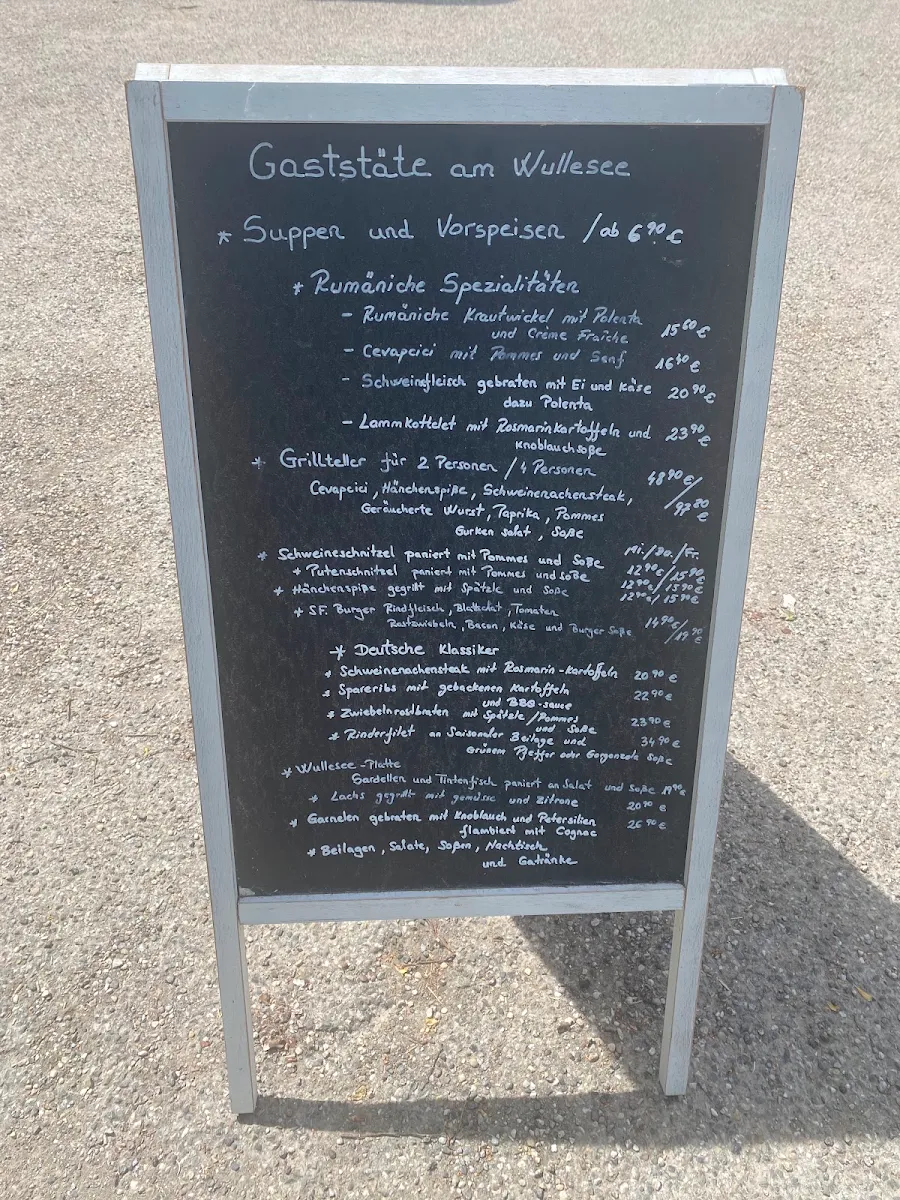 Gaststäte am Wullesee
* Suppen und Vorspeisen / ab 6,90 €
* Rumäniche Spezialitäten
- Rumäniche Krautwickel mit Polenta
und Crème Fraîche 15 60 €
- Cevapcici mit Pommes und Senf 16 40 €
- Schweinsfleisch gebraten mit Ei und Käse 20 90 €
dazu Polenta
- Lammkottelet mit Rosmarinkartoffeln und 23 90 €
Knoblauchsoße
* Grillteller für 2 Personen / 4 Personen 48 90 €/
Cevapcici, Hänchenspiße, Schweinenackensteak,
Geräucherte Wurst, Paprika, Pommes
Gurken salat, Soße
Mi./Do./Fr.
* Schweineschnitzel paniert mit Pommes und Soße 12 90 €/15 90 €
* Putenschnitzel paniert mit Pommes und soße 12 90 €/15 90 €
* Hänchenspiße gegrillt mit Spätzle und Soße 12 90 €/15 90 €
* S.F. Burger Rindfleisch, Blattsalat, Tomaten
Röstzwiebeln, Bacon, Käse und Burger Soße 14 90 €/19 90 €
* Deutsche Klassiker
* Schweinenackensteak mit Rosmarin-Kartoffeln 20 90 €
* Spareribs mit gebackenen Kartoffeln 22 90 €
und BBQ-sauce
* Zwiebelrostbraten mit Spätzle/Pommes 23 90 €
und Soße
* Rinderfilet an Saisonaler Beilage und 34 90 €
Grünem Pfeffer oder Gorgonzola Soße
* Wullesee-Platte
Sardellen und Tintenfisch paniert an Salat und soße 19 90 €
* Lachs gegrillt mit gemüse und zitrone 20 90 €
* Garnelen gebraten mit Knoblauch und Petersilien 26 90 €
flambiert mit Cognac
* Beilagen, Salate, Soßen, Nachtisch
und Getränke